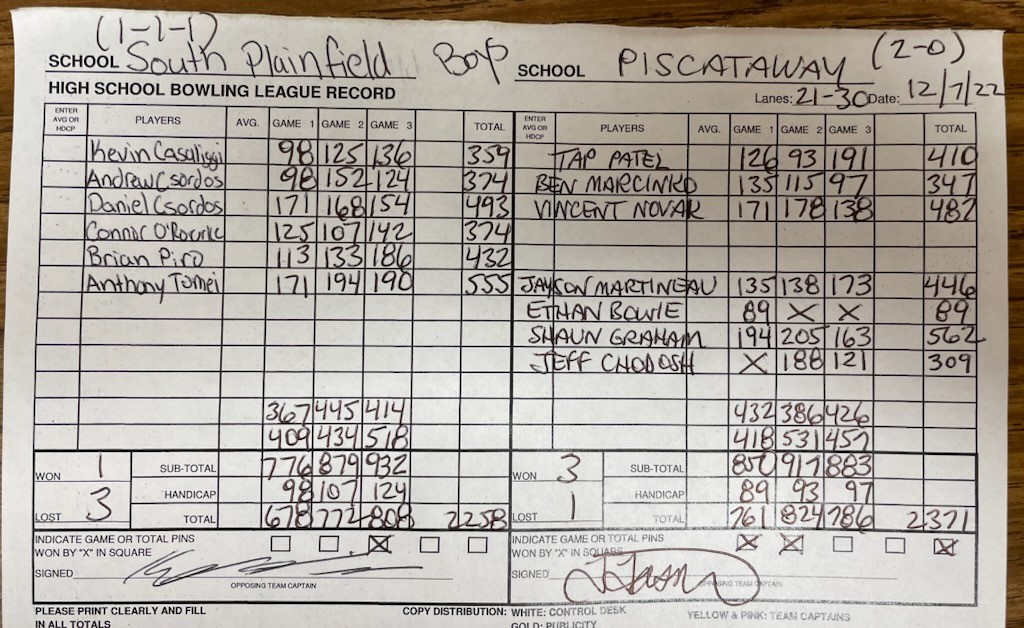 (1-1-1) (2-0)
SCHOOL South Plainfield Boys SCHOOL PISCATAWAY
HIGH SCHOOL BOWLING LEAGUE RECORD Lanes: 21-30 Date: 12/7/22
ENTER AVG OR HDCP PLAYERS AVG. GAME 1 GAME 2 GAME 3 TOTAL ENTER AVG OR HDCP PLAYERS AVG. GAME 1 GAME 2 GAME 3 TOTAL
Kevin Casaliggi 98 125 136 359 TAP PATEL 126 93 191 410
Andrew Csordos 98 152 124 374 BEN MARCINKO 135 115 97 347
Daniel Csordos 171 168 154 493 VINCENT NOVAK 171 178 138 482
Connor O'Rourke 125 107 142 374
Brian Piro 113 133 186 432
Anthony Tomei 171 194 190 555 JAYSON MARTINEAU 135 138 173 446
ETHAN BOWIE 89 X X 89
SHAUN GRAHAM 194 205 163 562
JEFF CHODOSH X 188 121 309
367 445 414 432 386 426
409 434 518 418 531 457
WON 1 SUB-TOTAL 776 879 932 WON 3 SUB-TOTAL 850 917 883
HANDICAP 98 107 124 HANDICAP 89 93 97
LOST 3 TOTAL 678 772 808 2258 LOST 1 TOTAL 761 824 786 2371
INDICATE GAME OR TOTAL PINS X INDICATE GAME OR TOTAL PINS X X X
WON BY "X" IN SQUARE WON BY "X" IN SQUARE
SIGNED SIGNED
OPPOSING TEAM CAPTAIN OPPOSING TEAM CAPTAIN
PLEASE PRINT CLEARLY AND FILL COPY DISTRIBUTION: WHITE: CONTROL DESK YELLOW & PINK: TEAM CAPTAINS
IN ALL TOTALS GOLD: PUBLICITY